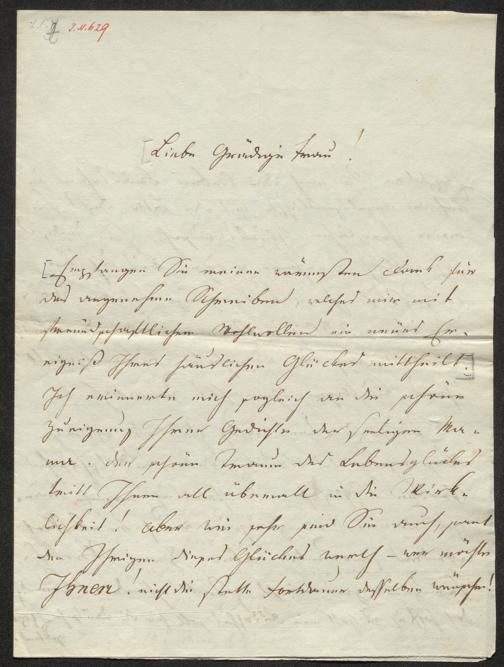 J.N. 629
Liebe Gnädige Frau!
Empfangen Sie meinen wärmsten Dank für
das angenehme Schreiben, welches mir mit
freundschaftlichen Wohlwollen ein neues Er-
eigniß Ihres häuslichen Glückes mittheilt.
Ich erinnerte mich sogleich an die schöne
Zueignung Ihrer Gedichte der seeligen Ma-
ma. der schöne Traum des Lebensglückes
tritt Ihnen all überall in die Wirk-
lichkeit! aber wie sehr sind Sie auch, samt
den Ihrigen dieses Glückes werth – wer möchte
Ihnen! nicht die stette Fortdauer desselben wünschen!